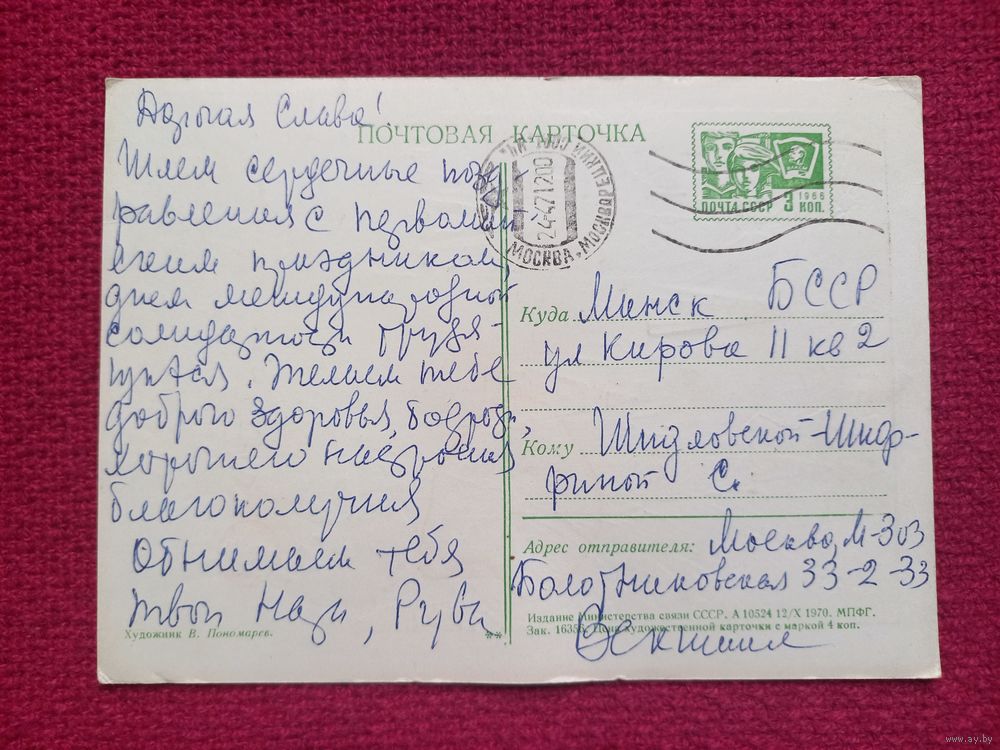 Дорогая Слава!
ПОЧТОВАЯ КАРТОЧКА
Шлем сердечные позд-
равления с первомай-
ским праздником,
днем международной
солидарности трудя-
щихся. Желаем тебе
доброго здоровья, бодрости,
хорошего настроения,
благополучия
Обнимаем тебя
твои
Художник В. Пономарев.
**
МОСКВА
24-4711200
ПОЧТА СССР 3 КОП.
1966
Куда Минск БССР
ул Кирова 11 кв 2
Кому Шидловской-Шиф-
риной С.
Адрес отправителя: Москва, М-303
Болотниковская 33-2-33
Издание Министерства связи СССР. А 10524 12/X 1970. МПФГ.
Зак. 16356. Цена художественной карточки с маркой 4 коп.
www.ay.by